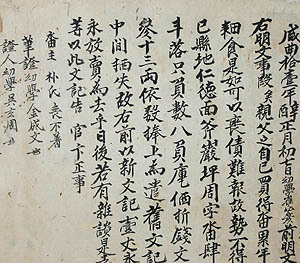 年辛酉正月初 日幼學崔 前明文
右明文事段矣親父之自己買得畓累年
耕食是如可以喪債難報故勢不得
已縣地仁德面斧巖坪周字畓肆
斗落只負數八負庫 価折錢文
參十三兩依數捧上爲遣舊文記
中間 失故右前以新文記壹丈永
永放賣爲去乎日後若有雜談是去
等以此文記告 官卞正事
畓主 朴氏 喪不着
筆證幼學 金成文
證人幼學吳玄周